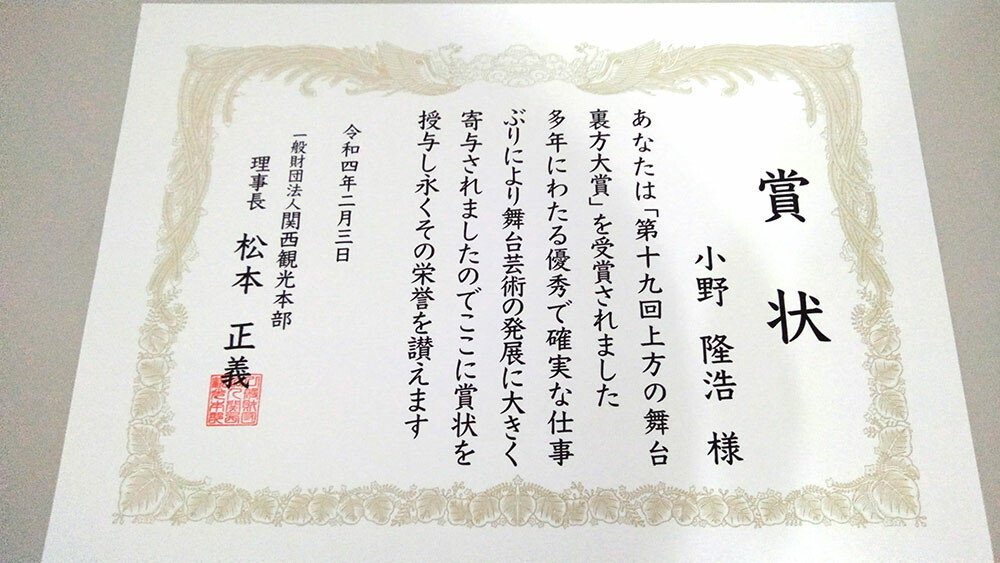 賞状
小野 隆浩 様
あなたは「第十九回上方の舞台
裏方大賞」を受賞されました
多年にわたる優秀で確実な仕事
ぶりにより舞台芸術の発展に大きく
寄与されましたのでここに賞状を
授与し永くその栄誉を讃えます
令和四年二月三日
一般財団法人 関西観光本部
理事長 松本 正義